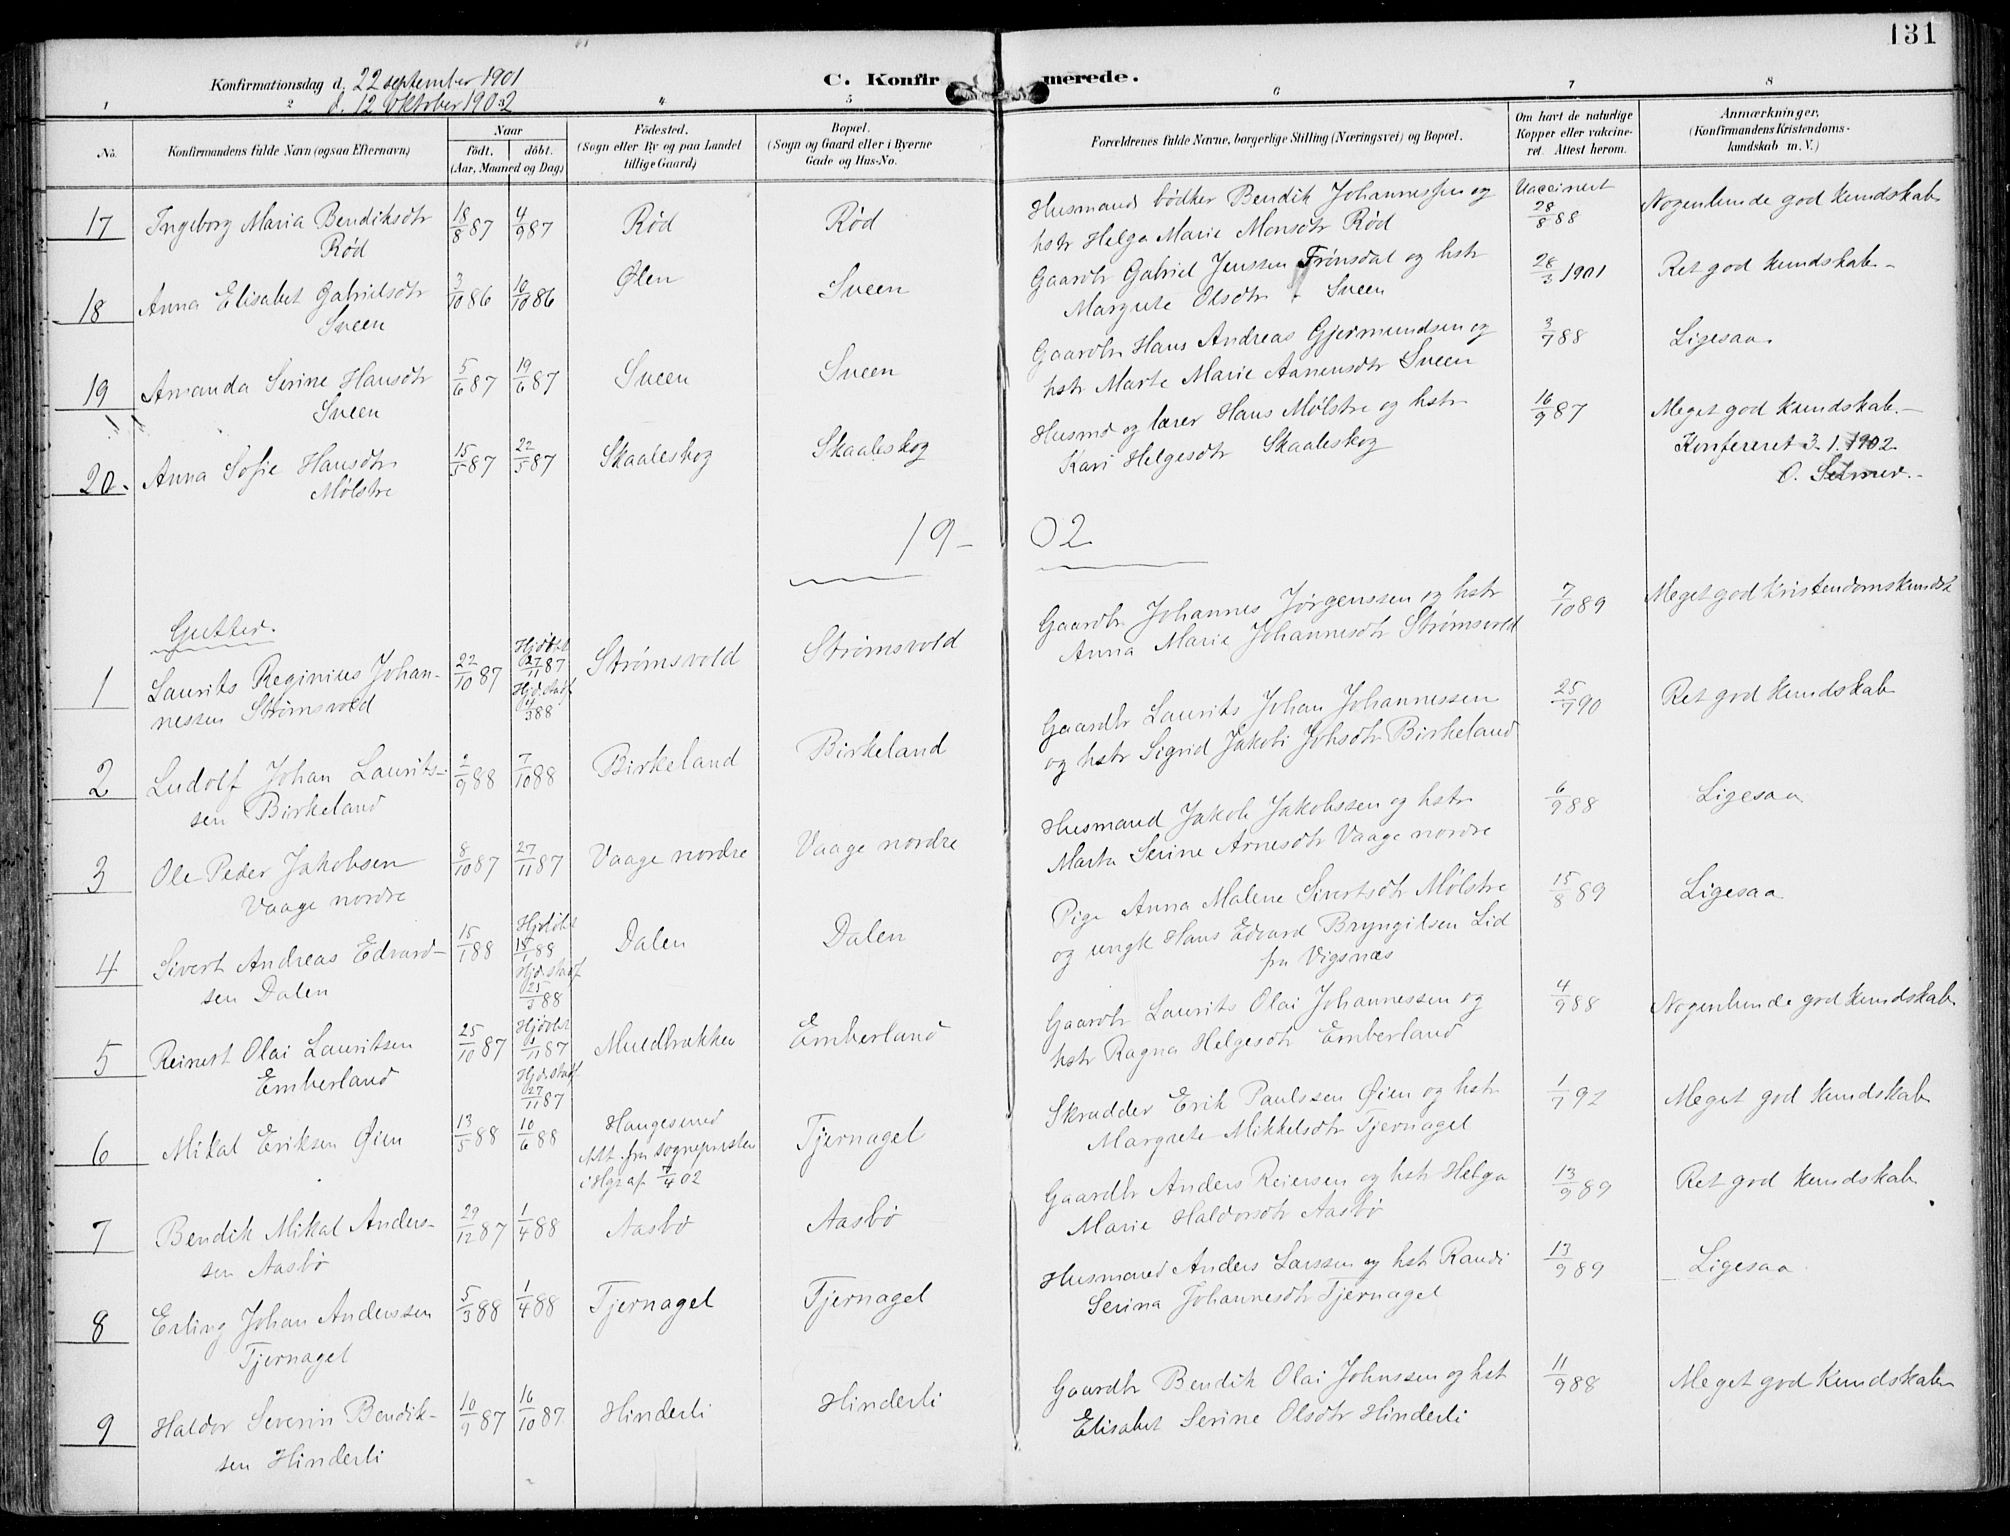 131
Konfirmationsdag d. 22 september 1901
d. 12 Oktober 1902
C. Konfirmerede.
1 2 4 5 6 7 8
No.
Konfirmandens fulde Navn (ogsaa Efternavn)
Naar
født. døbt.
(Aar, Maaned og Dag)
Fødested.
(Sogn eller By og paa Landet
tillige Gaard)
Bopæl.
(Sogn og Gaard eller i Byerne
Gade og Hus-No.
Forældrenes fulde Navne, borgerlige Stilling (Næringsvei) og Bopæl.
Om havt de naturlige
Kopper eller vakcine-
ret. Attest herom.
Anmærkninger.
(Konfirmandens Kristendoms-
kundskab m. V.)
17 Ingeborg Maria Bendiksdtr 18/8 87 4/9 87 Rød Rød Husmand bødker Bendik Johannessen og Vaccinert 28/8 88 Nogenlunde god kundskab
Rød hstr Helga Marie Monsdtr Rød
18 Anna Elisabet Gabrielsdtr 3/10 86 10/10 86 Ølen Sveen Gaardbr Gabriel Jenssen Trønsdal og hstr 28/3 1901 Ret god kundskab
Sveen Margrete Olsdtr Sveen
19 Amanda Serine Hansdtr 5/6 87 19/6 87 Sveen Sveen Gaardbr Hans Andreas Gjermundsen og 3/7 88 Ligesaa
Sveen hstr Marte Marie Aanensdtr Sveen
20. Anna Sofie Hansdtr 15/5 87 22/5 87 Skaaleskog Skaaleskog Husmd og lærer Hans Mølstre og hstr 16/9 87 Meget god kundskab.
Mølstre Kari Helgesdtr Skaaleskog
Konfereret 3.1.1902
O. Selmer.
19-02
Gutter.
1 Laurits Reginius Johan- 22/10 87 Hjdøbt 27/11 87 Strømsvold Strømsvold Gaardbr Johannes Jørgenssen og hstr 7/10 89 Meget god Kristendomskundsk
nessen Strømsvold Hjd. stadf 4/3 88 Anna Marie Johannesdtr Strømsvold
2 Ludolf Johan Laurits- 2/9 88 7/10 88 Birkeland Birkeland Gaardbr Laurits Johan Johannessen 25/9 90 Ret god kundskab
sen Birkeland og hstr Sigrid Jakobi Johsdtr Birkeland
3 Ole Peder Jakobsen 8/10 87 27/11 87 Vaage nordre Vaage nordre Husmand Jakob Jakobssen og hstr 6/9 88 Ligesaa
Vaage nordre Marta Serine Arnesdtr Vaage nordre
4 Sivert Andreas Edvard- 15/1 88 Hjdøbt 15/1 88 Dalen Dalen Pige Anna Malene Sivertsdtr Mølstre 15/8 89 Ligesaa
sen Dalen Hjd. stadf 25/3 88 og ungk Hans Edvard Bryngilsen Lid
fra Vigsnæs
5 Reinert Olai Lauritsen 25/10 87 Hjdøbt 1/11 87 Muldbrækken Emberland Gaardbr Laurits Olai Johannessen og 4/9 88 Nogenlunde god kundskab
Emberland Hjd. stadf 27/11 87 hstr Ragna Helgesdtr Emberland
6 Mikal Eriksen Øien 13/5 88 10/6 88 Haugesund Tjernagel Skrædder Erik Paulssen Øien og hstr 1/7 92 Meget god kundskab
Att. fra sognepresten Margrete Mikkelsdtr Tjernagel
i Hgsaf 7/4 02
7 Bendik Mikal Anders- 29/12 87 1/4 88 Aasbø Aasbø Gaardbr Anders Reiersen og hstr Helga 13/9 89 Ret god kundskab
sen Aasbø Marie Haldorsdtr Aasbø
8 Erling Johan Anderssen 5/3 88 1/4 88 Tjernagel Tjernagel Husmand Anders Larssen og hstr Randi 13/9 89 Ligesaa
Tjernagel Serina Johannesdtr Tjernagel
9 Haldor Severin Bendik- 10/9 87 16/10 87 Hinderli Hinderli Gaardbr Bendik Olai Johnssen og hst 11/9 88 Meget god kundskab
sen Hinderli Elisabet Serine Olsdtr Hinderli